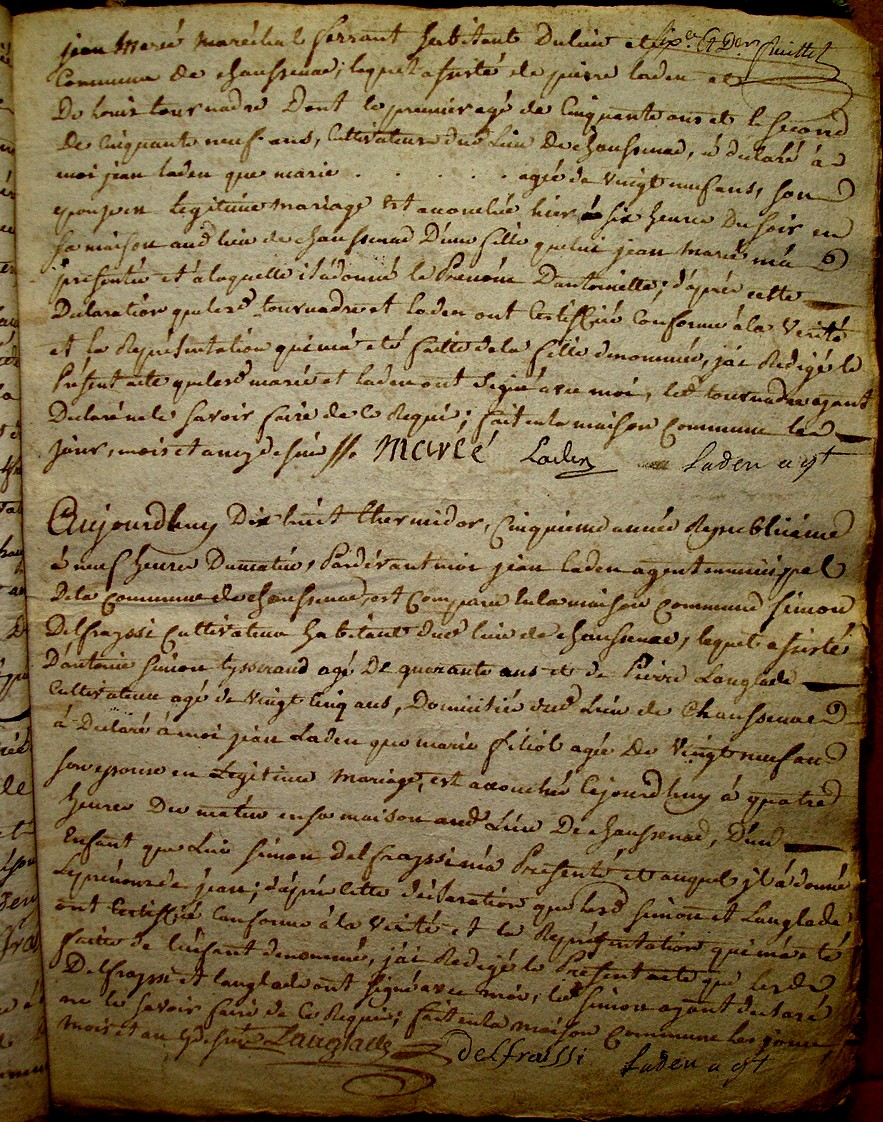 jean Marié Maréchal ferrant habitant du lieu et
Commune de chaussenac, lequel assisté de pierre laden et
De louis tournadre Dont le premier agé de Cinquante ans et le second
De Cinquante neuf ans, Cultivateurs dud lieu De chaussenac, à declaré à
moi jean laden que marie . . . . . agée de vingt neuf ans, son
epouse en legitime mariage est accouchée hier à six heures Du soir en
sa maison aud lieu de chaussenac D'une fille que lui jean Marié m'a
présentée et à laquelle il à donné le Prenom D'antoinette; d'après cette
Declaration que lesd tournadre et laden ont Certiffié Conforme à la Verité
et la Représentation qui m'a eté faitte de la fille denommée, j'ai Redigé le
Présent acte que lesd marié et laden ont signé avec moi, led tournadre ayant
Declaré ne le savoir faire de ce Requis; fait en la maison Commune les
jour, mois et an sus. Marié Laden Laden agt
Aujourdhuy Dix huit thermidor, Cinquieme année Republicaine
à neuf heures Du matin, Pardevant moi jean laden agent municipal
De la Commune de chaussenac, est Comparu en la maison Commune simon
Delfrayssi Cultivateur habitant dud lieu de chaussenac, lequel assisté
D'antoine simon tysserand agé De quarante ans et de Pierre Langlade
Cultivateur agé de vingt Cinq ans, Domiciliés dud Lieu de Chaussenac
à Declaré à moi jean Laden que marie filiol agée De Vingt neuf ans
son epouse en Legitime mariage, est accouchée Cejourdhuy à quatre
heures Du matin en sa maison aud Lieu De chaussenac, D'un
Enfant que Lui simon delfrayssi m'a Presenté et auquel jl à donné
le prénom de jean; d'après cette déclaration que lesd simon et Langlade
ont Certiffié Conforme à la Verité et la Représentation qui m'a eté
faitte de l'enfant denommé, j'ai Redigé le Présent acte que lesd
Delfrayssi et langlade ont signé avec moi, led simon ayant declaré
ne le savoir faire de Ce Requis; fait en la maison Commune les jour,
mois et an sus. Langlade delfraissi Laden agt